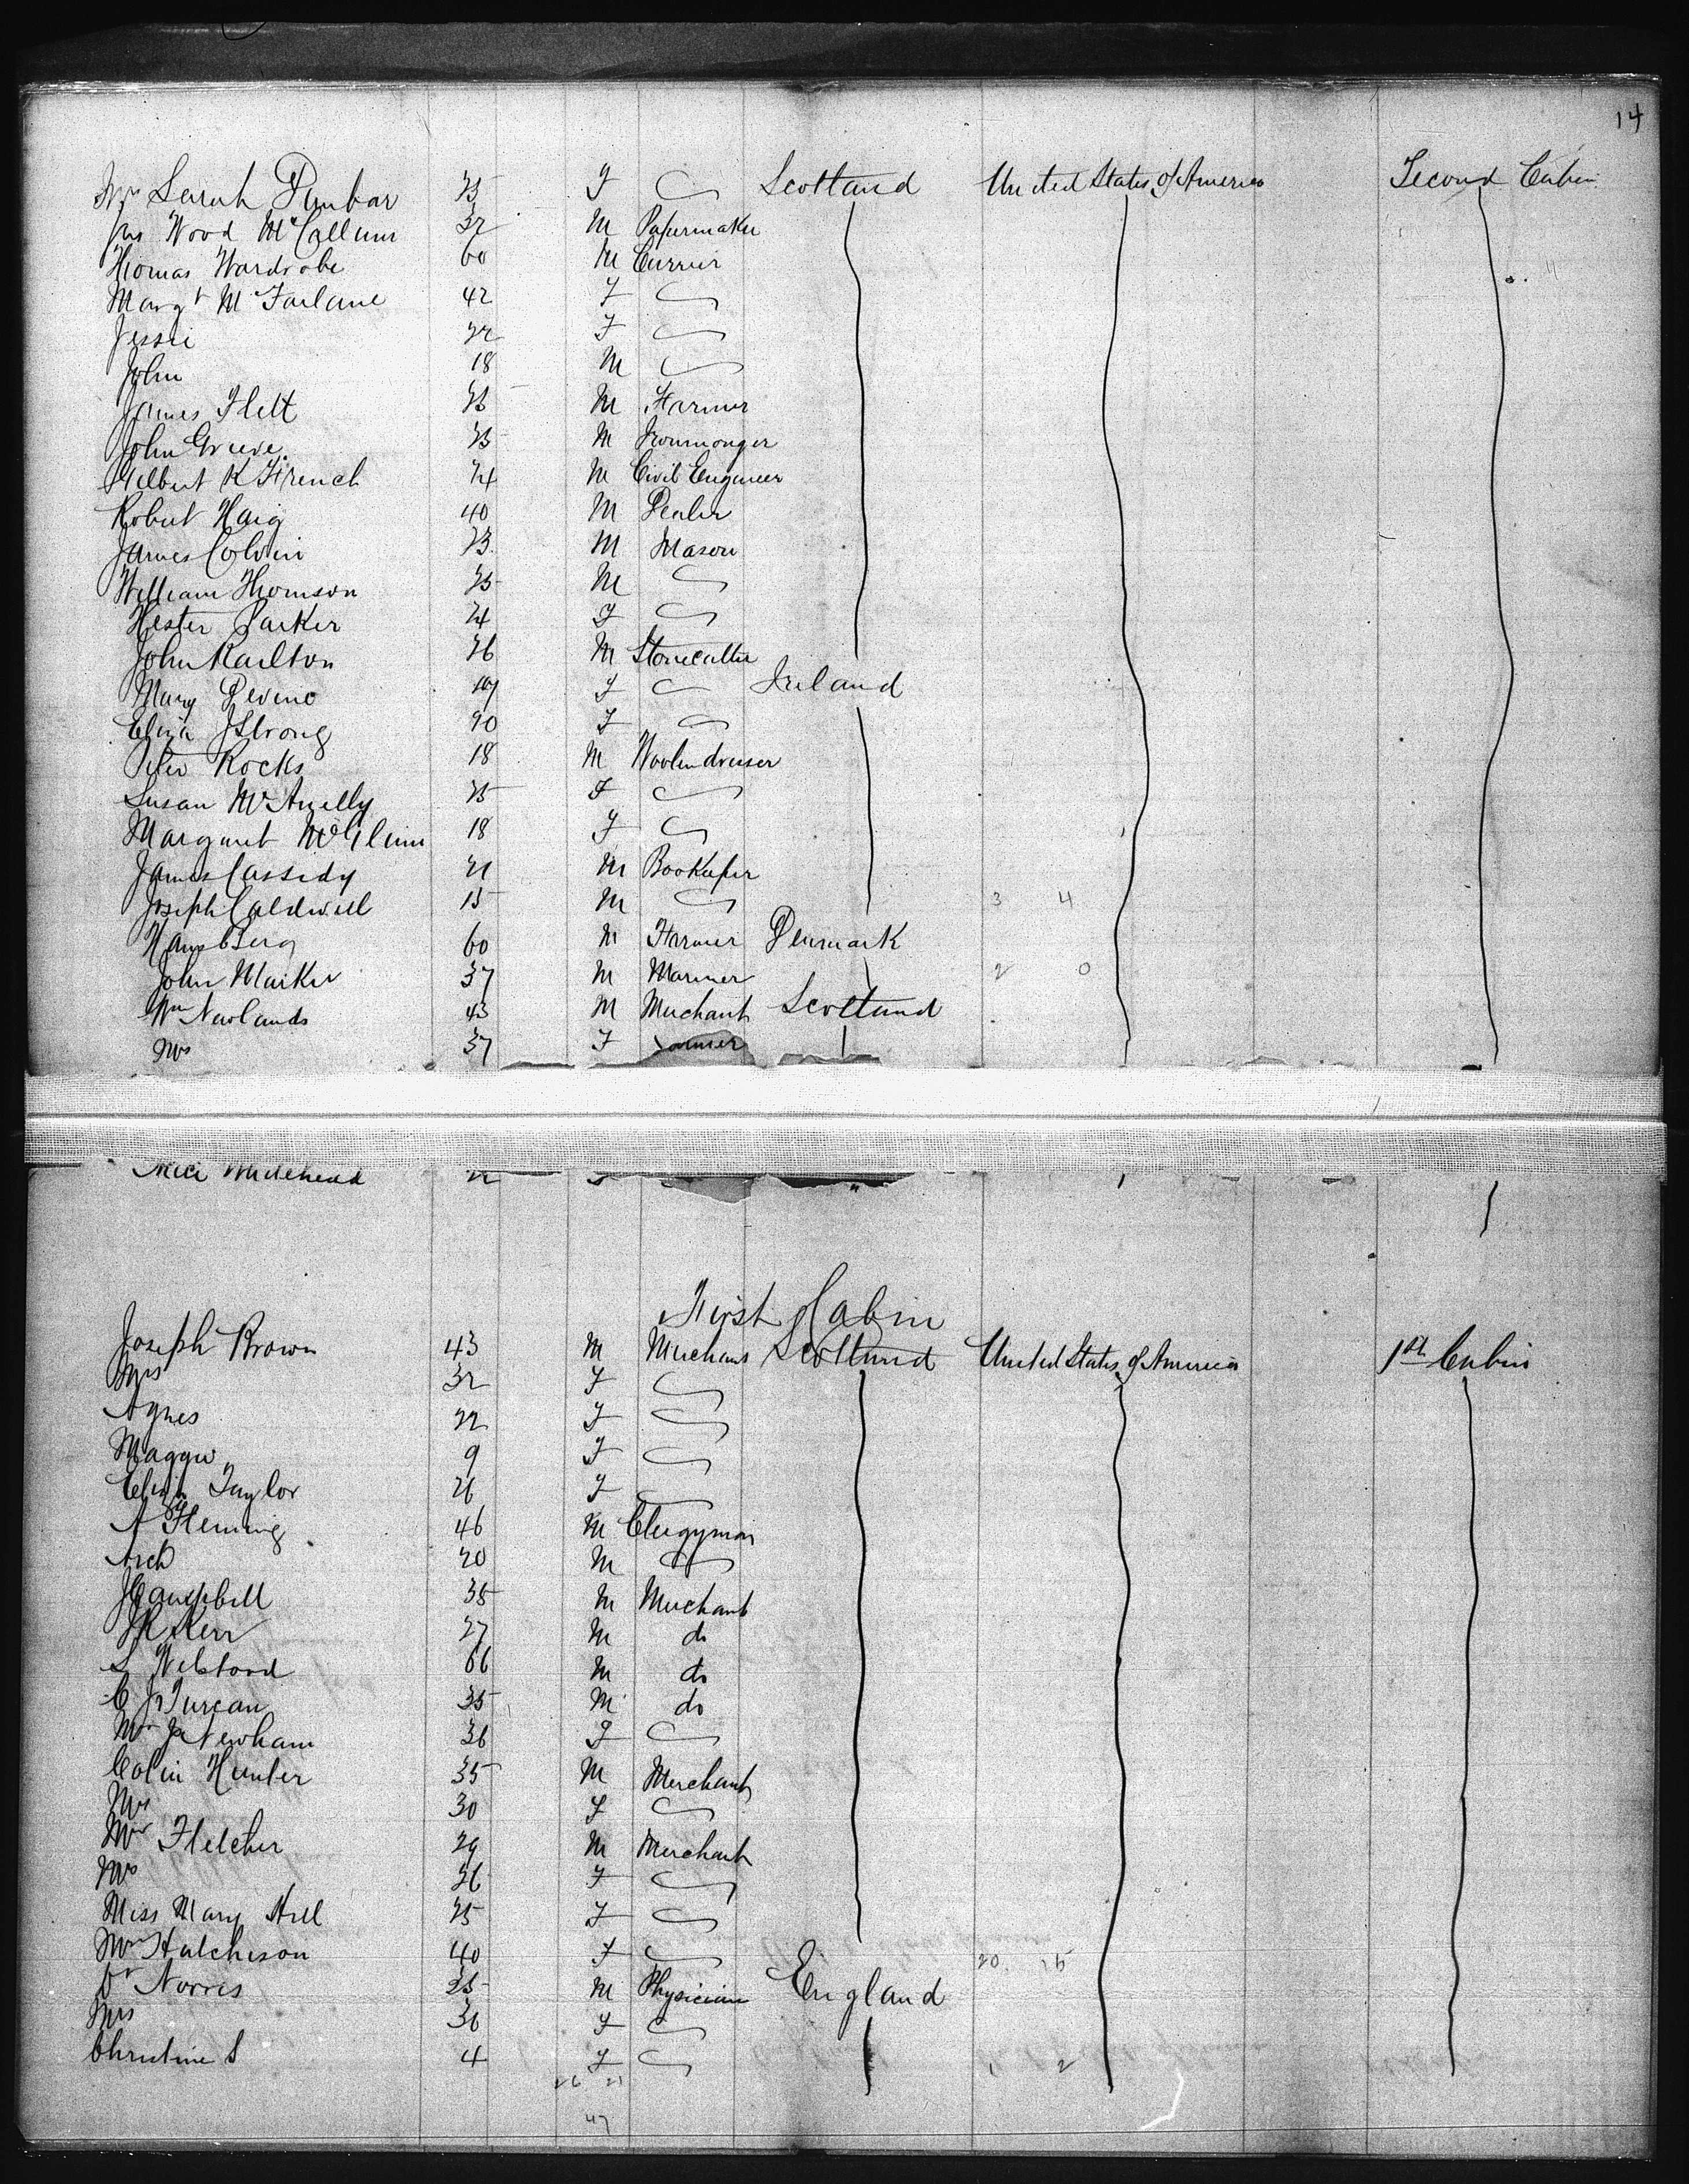 14
Mrs Sarah Dunbar 25 F Scotland United States of America Second Cabin
Jas Wood McCallum 32 M Papermaker
Thomas Wardrobe 60 M Currier
Margt McFarlane 42 F
Jessie 22 F
John 18 M
James Flett 25 M Farmer
John Grieve 25 M Ironmonger
Gilbert K French 24 M Civil Engineer
Robert Haig 40 M Dealer
James Colvin 23 M Mason
William Thomson 25 M
Hester Parker 24 F
John Railton 26 M Stonecutter
Mary Devine F Ireland
Eliza J Strong 20 F
Peter Rocks 18 M Woolendresser
Susan McAnelly 25 F
Margaret McGlinn 18 F
James Cassidy 21 M Bookeeper
Joseph Caldwell 15 M 3 4
Hans Berg 60 M Farmer Denmark
John Marker 37 M Mariner 2 0
Wm Newlands 43 M Merchant Scotland
Mrs 37 F
Whitehead 22
First Cabin
Joseph Brown 43 M Merchant Scotland United States of America 1st Cabin
Mrs 32 F
Agnes 22 F
Maggie 9 F
Eliza Taylor 26 F
A Fleming 46 M Clergyman
Arch 20 M
J Campbell 35 M Merchant
J R Kerr 27 M do
S 66 M do
C J Turcan 35 M do
Mrs J Newham 36 F
Colin Hunter 35 M Merchant
Mrs 30 F
Mr Fletcher 29 M Merchant
Mrs 26 F
Miss Mary Hill 25 F
Mrs Hutcheson 40 F 20 15
Dr Norris 35 M Physician England
Mrs 36 F
Christine S 4 F 1 2
26 21
47